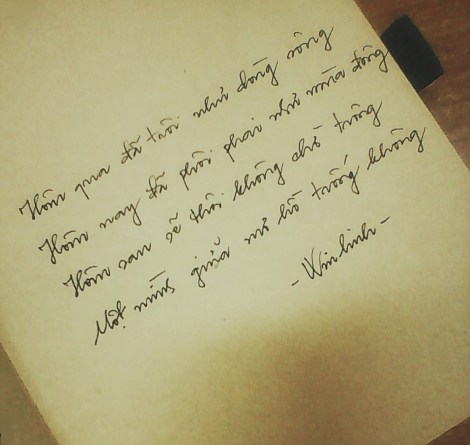 Hôm qua đã trôi như dòng sông
Hôm nay đã phôi phai như mùa đông
Hôm sau sẽ thôi không chờ trông
Một mình giữa mơ hồ trống không
- Win linh -